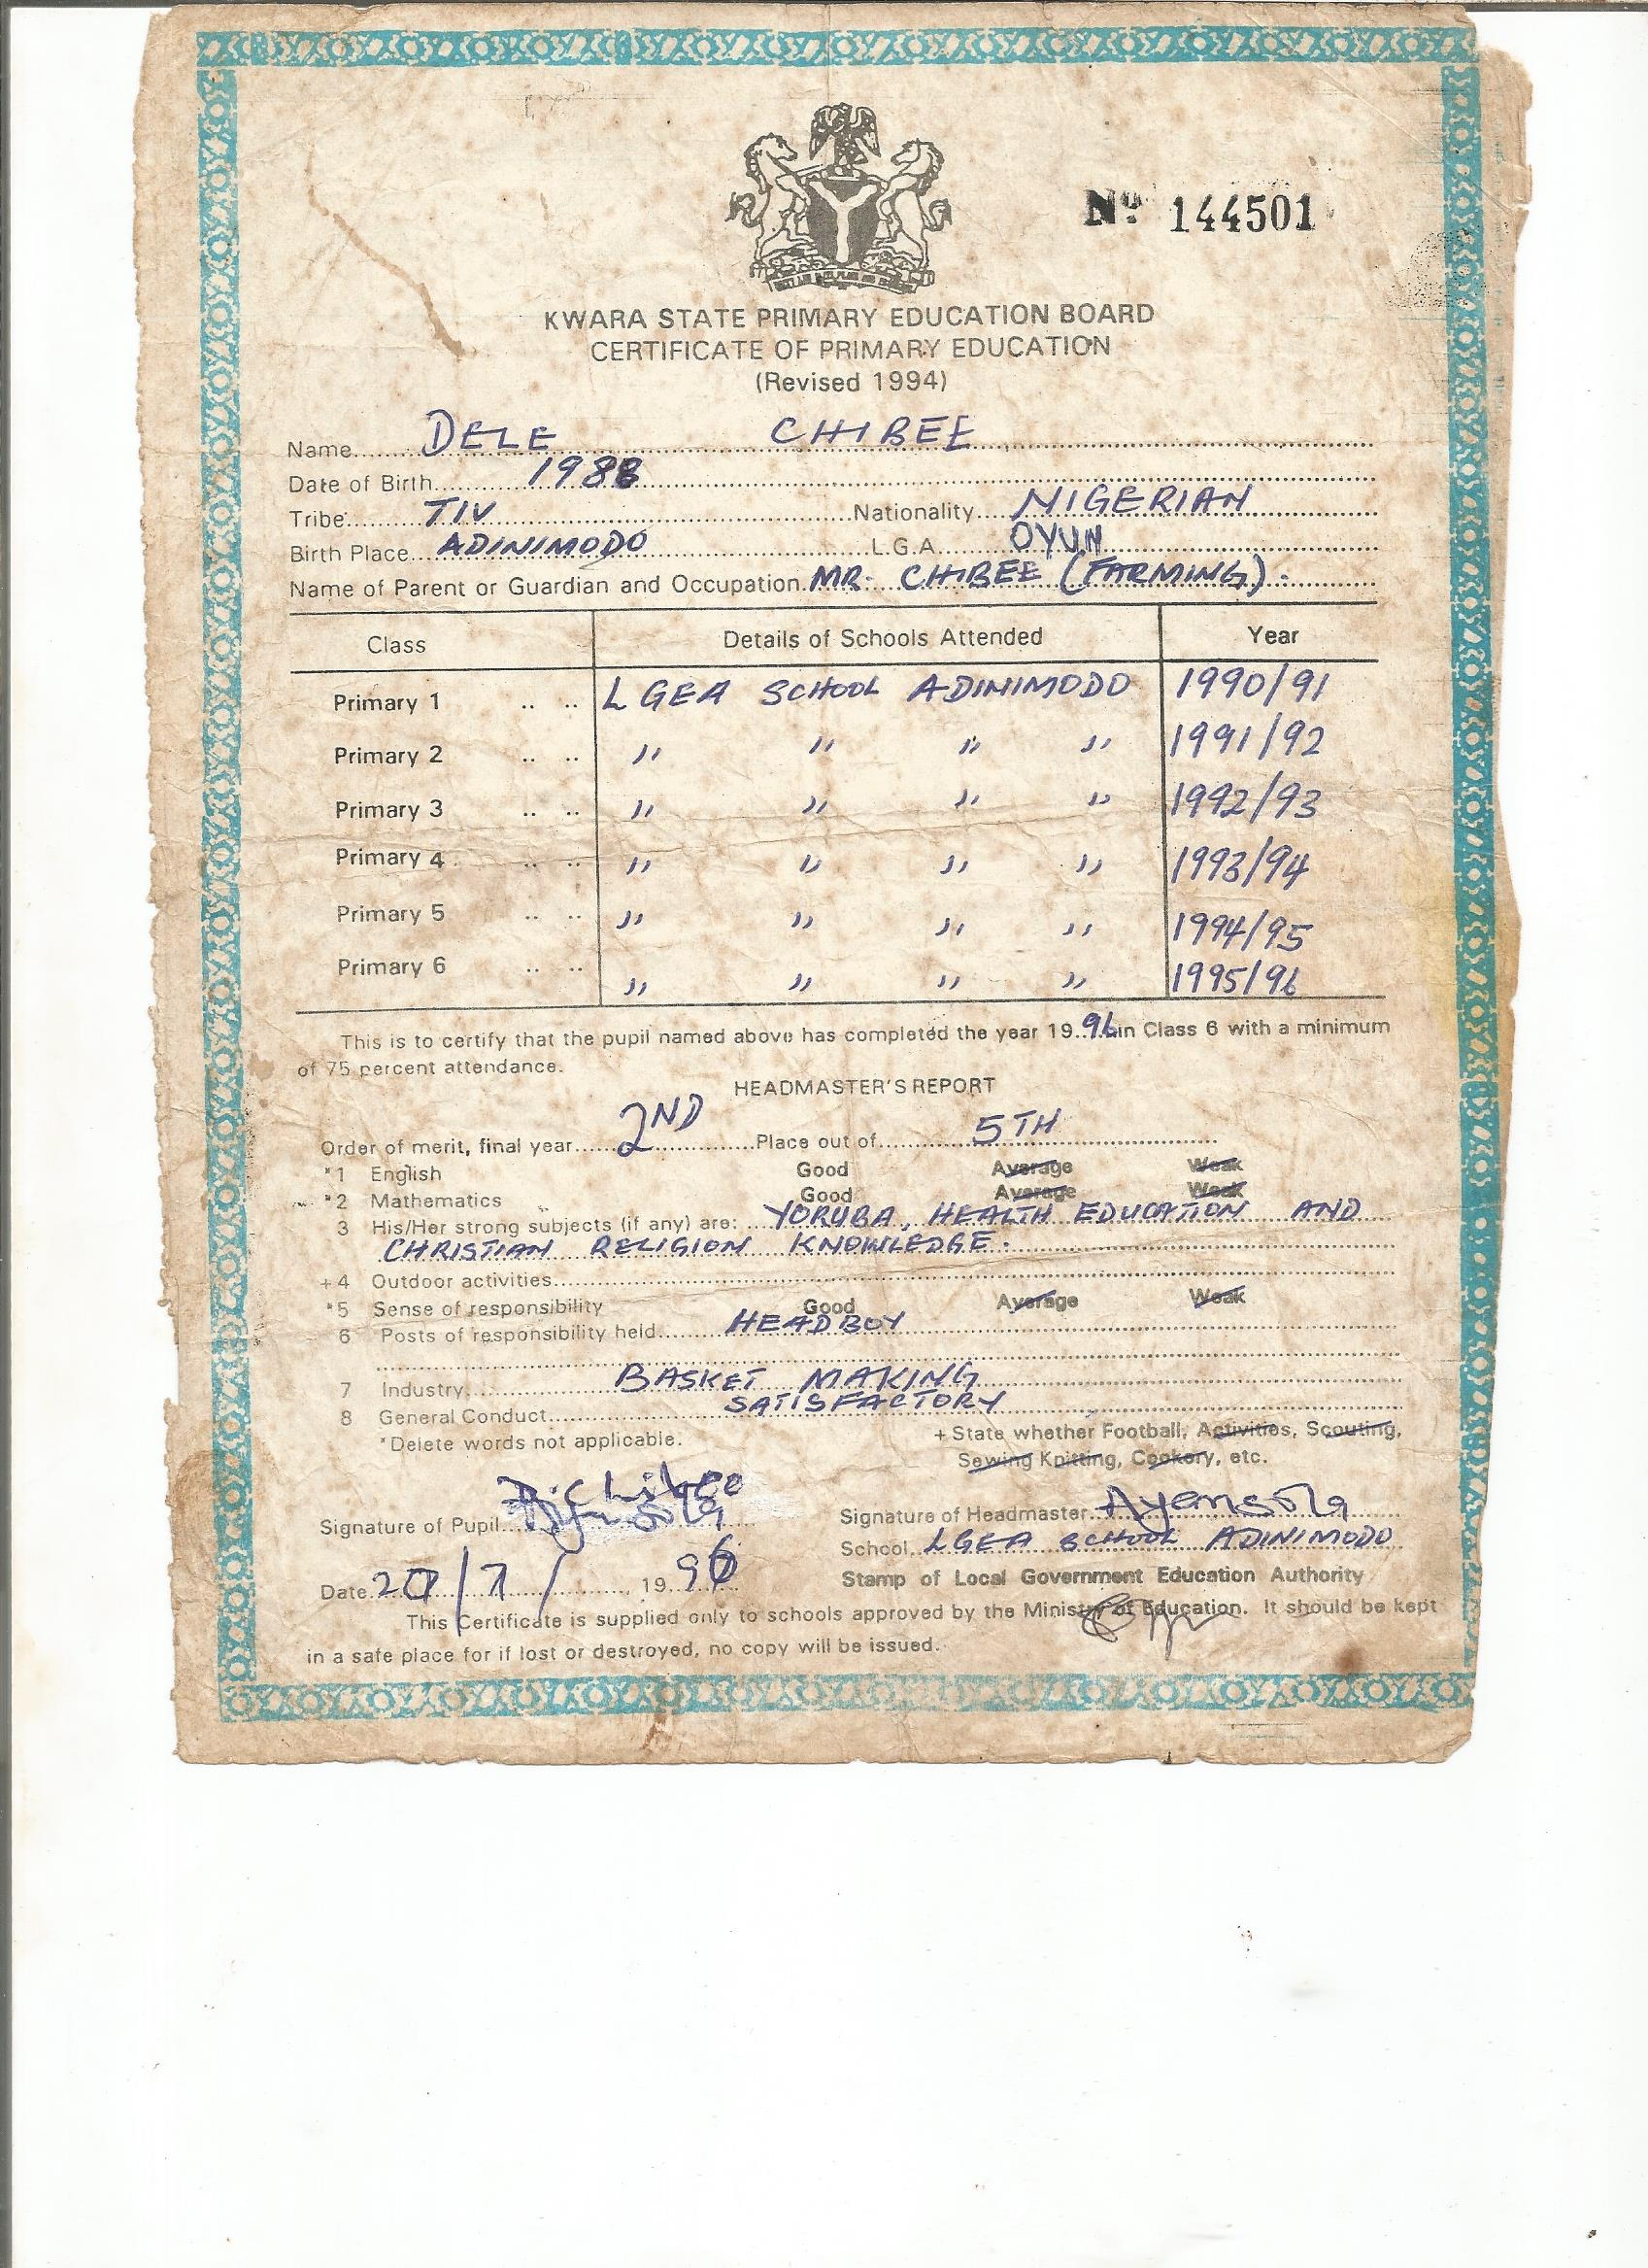 Nº 144501
KWARA STATE PRIMARY EDUCATION BOARD
CERTIFICATE OF PRIMARY EDUCATION
(Revised 1994)
Name DELE CHIBEE
Date of Birth 1988
Tribe TIV Nationality NIGERIAN
Birth Place ADINIMODO L.G.A. OYUN
Name of Parent or Guardian and Occupation MR. CHIBEE (FARMING).
Class Details of Schools Attended Year
Primary 1 .. .. LGEA SCHOOL ADINIMODO 1990/91
Primary 2 .. .. " " " " 1991/92
Primary 3 .. .. " " " " 1992/93
Primary 4 .. .. " " " " 1993/94
Primary 5 .. .. " " " " 1994/95
Primary 6 .. .. " " " " 1995/96
This is to certify that the pupil named above has completed the year 19 96 in Class 6 with a minimum
of 75 percent attendance.
HEADMASTER'S REPORT
Order of merit, final year 2ND Place out of 5TH
*1 English Good Average Weak
*2 Mathematics Good Average Weak
3 His/Her strong subjects (if any) are: YORUBA, HEALTH EDUCATION AND
CHRISTIAN RELIGION KNOWLEDGE.
+4 Outdoor activities
*5 Sense of responsibility Good Average Weak
6 Posts of responsibility held HEADBOY
7 Industry BASKET MAKING
8 General Conduct SATISFACTORY
*Delete words not applicable. +State whether Football, Activities, Scouting,
Sewing Knitting, Cookery, etc.
Signature of Pupil D. Chibee Signature of Headmaster Ayansola
School LGEA SCHOOL ADINIMODO
Date 20/7/ 1996 Stamp of Local Government Education Authority
This Certificate is supplied only to schools approved by the Ministry of Education. It should be kept
in a safe place for if lost or destroyed, no copy will be issued.